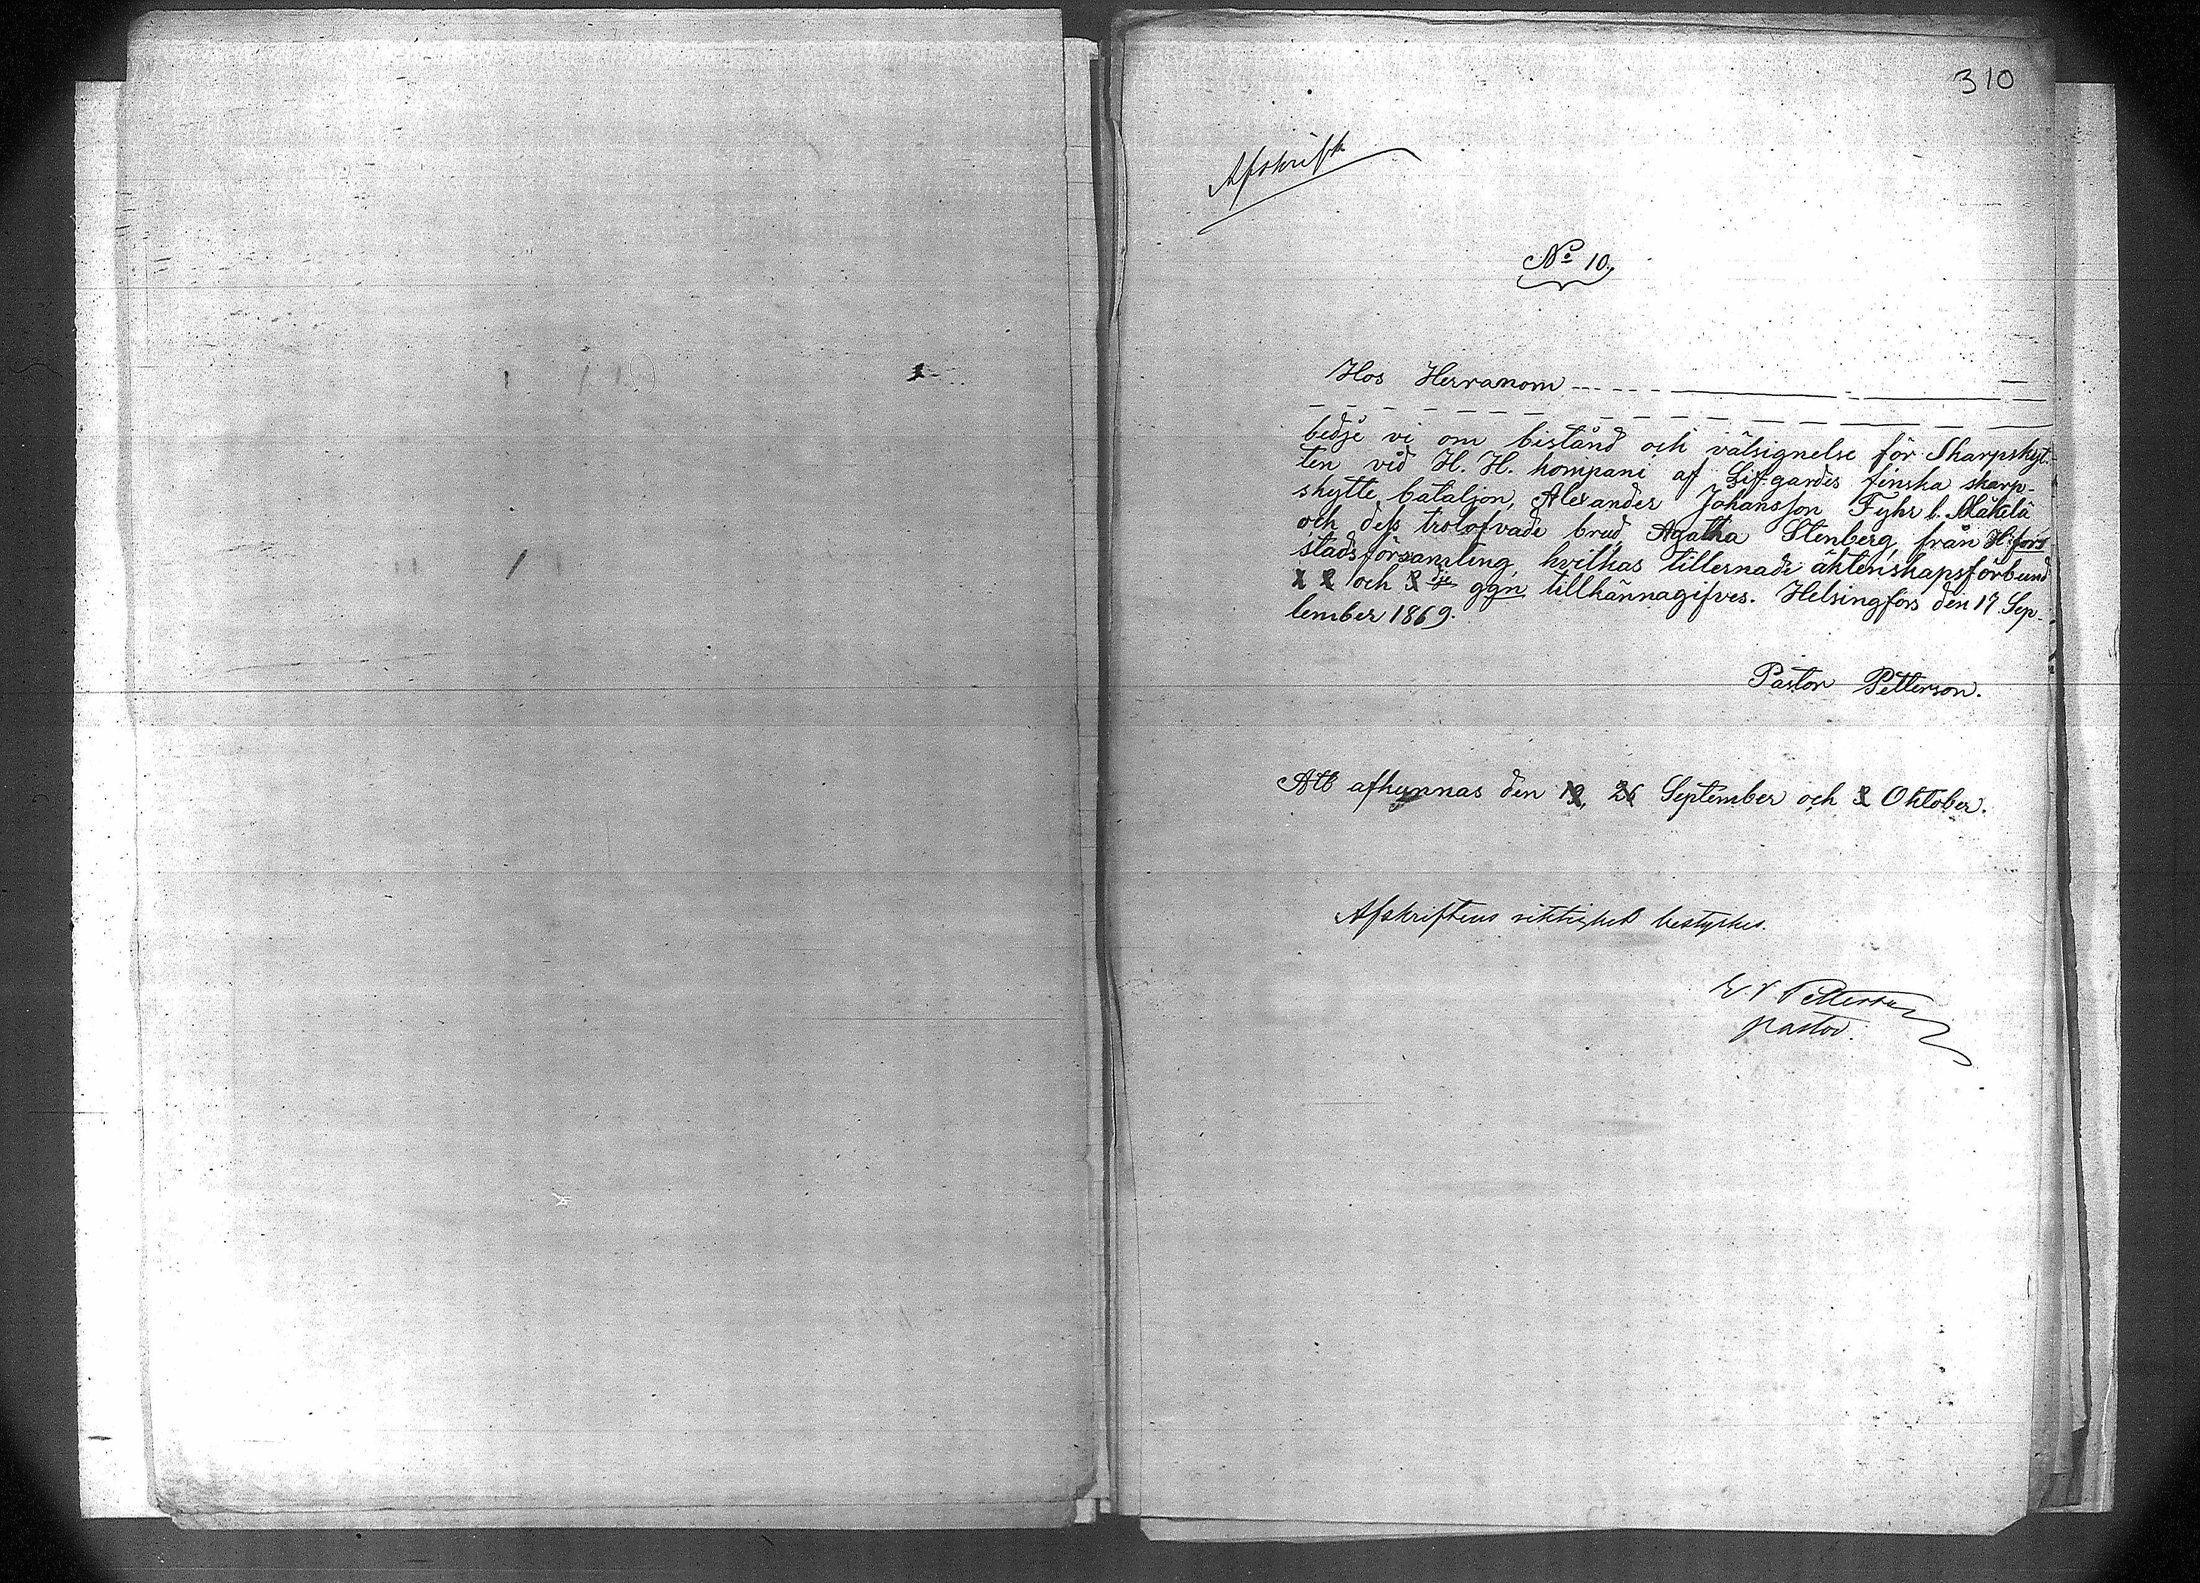 310
Afskrift
No 10.
Hos Herranom
bedje vi om bistånd och välsignelse för Skarpskyt-
ten vid H. H. kompani af Lifgardes finska skarp-
skytte bataljon, Alexander Johansson Fyhr l. Mäkelä
och dess trolofvade brud, Agatha Stenberg, från H:fors
stadsförsamling, hvilkas tillernade äktenskapsförbund
1 2 och 3dje ggn tillkännagifves. Helsingfors den 17 Sep-
tember 1869.
Pastor Petterson.
Att afkunnas den 19, 26 September och 3 Oktober.
Afskriftens riktighet bestyrkes.
Petterson
pastor.